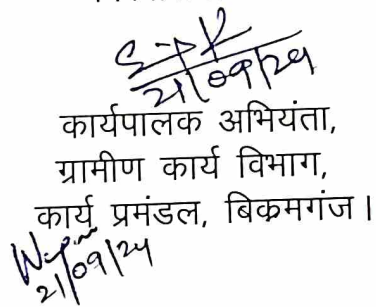 21/09/24
कार्यपालक अभियंता,
ग्रामीण कार्य विभाग,
कार्य प्रमंडल, बिक्रमगंज।
21/09/24